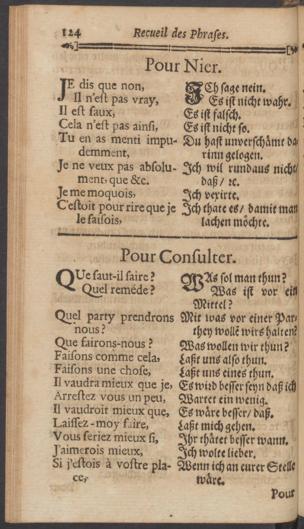 124 Recueil des Phrases.
Pour Nier.
JE dis que non,
Il n'est pas vray,
Il est faux,
Cela n'est pas ainsi,
Tu en as menti impu-
demment,
Je ne veux pas absolu-
ment, que &c.
Je me moquois,
C'estoit pour rire que je
le faisois,
ICh sage nein.
Es ist nicht wahr.
Es ist falsch.
Es ist nicht so.
Du hast unverschämt da-
rinn gelogen.
Ich wil rundaus nicht/
daß / ꝛc.
Ich vexirte.
Ich thate es / damit man
lachen möchte.
Pour Consulter.
QUe faut-il faire?
Quel reméde?
Quel party prendrons
nous?
Que fairons-nous?
Faisons comme cela,
Faisons une chose,
Il vaudra mieux que je,
Arrestez vous un peu,
Il vaudroit mieux que,
Laissez-moy faire,
Vous seriez mieux si,
J'aimerois mieux,
Si j'estois à vostre pla-
ce,
WAs sol man thun?
Was ist vor ein
Mittel?
Mit was vor einer Par-
they wollē wirs halten?
Was wollen wir thun?
Laßt uns also thun.
Laßt uns eines thun.
Es wird besser seyn daß ich
Wartet ein wenig.
Es wäre besser / daß.
Laßt mich gehen.
Ihr thätet besser wann.
Ich wolte lieber.
Wenn ich an eurer Stelle
wäre.
Pour